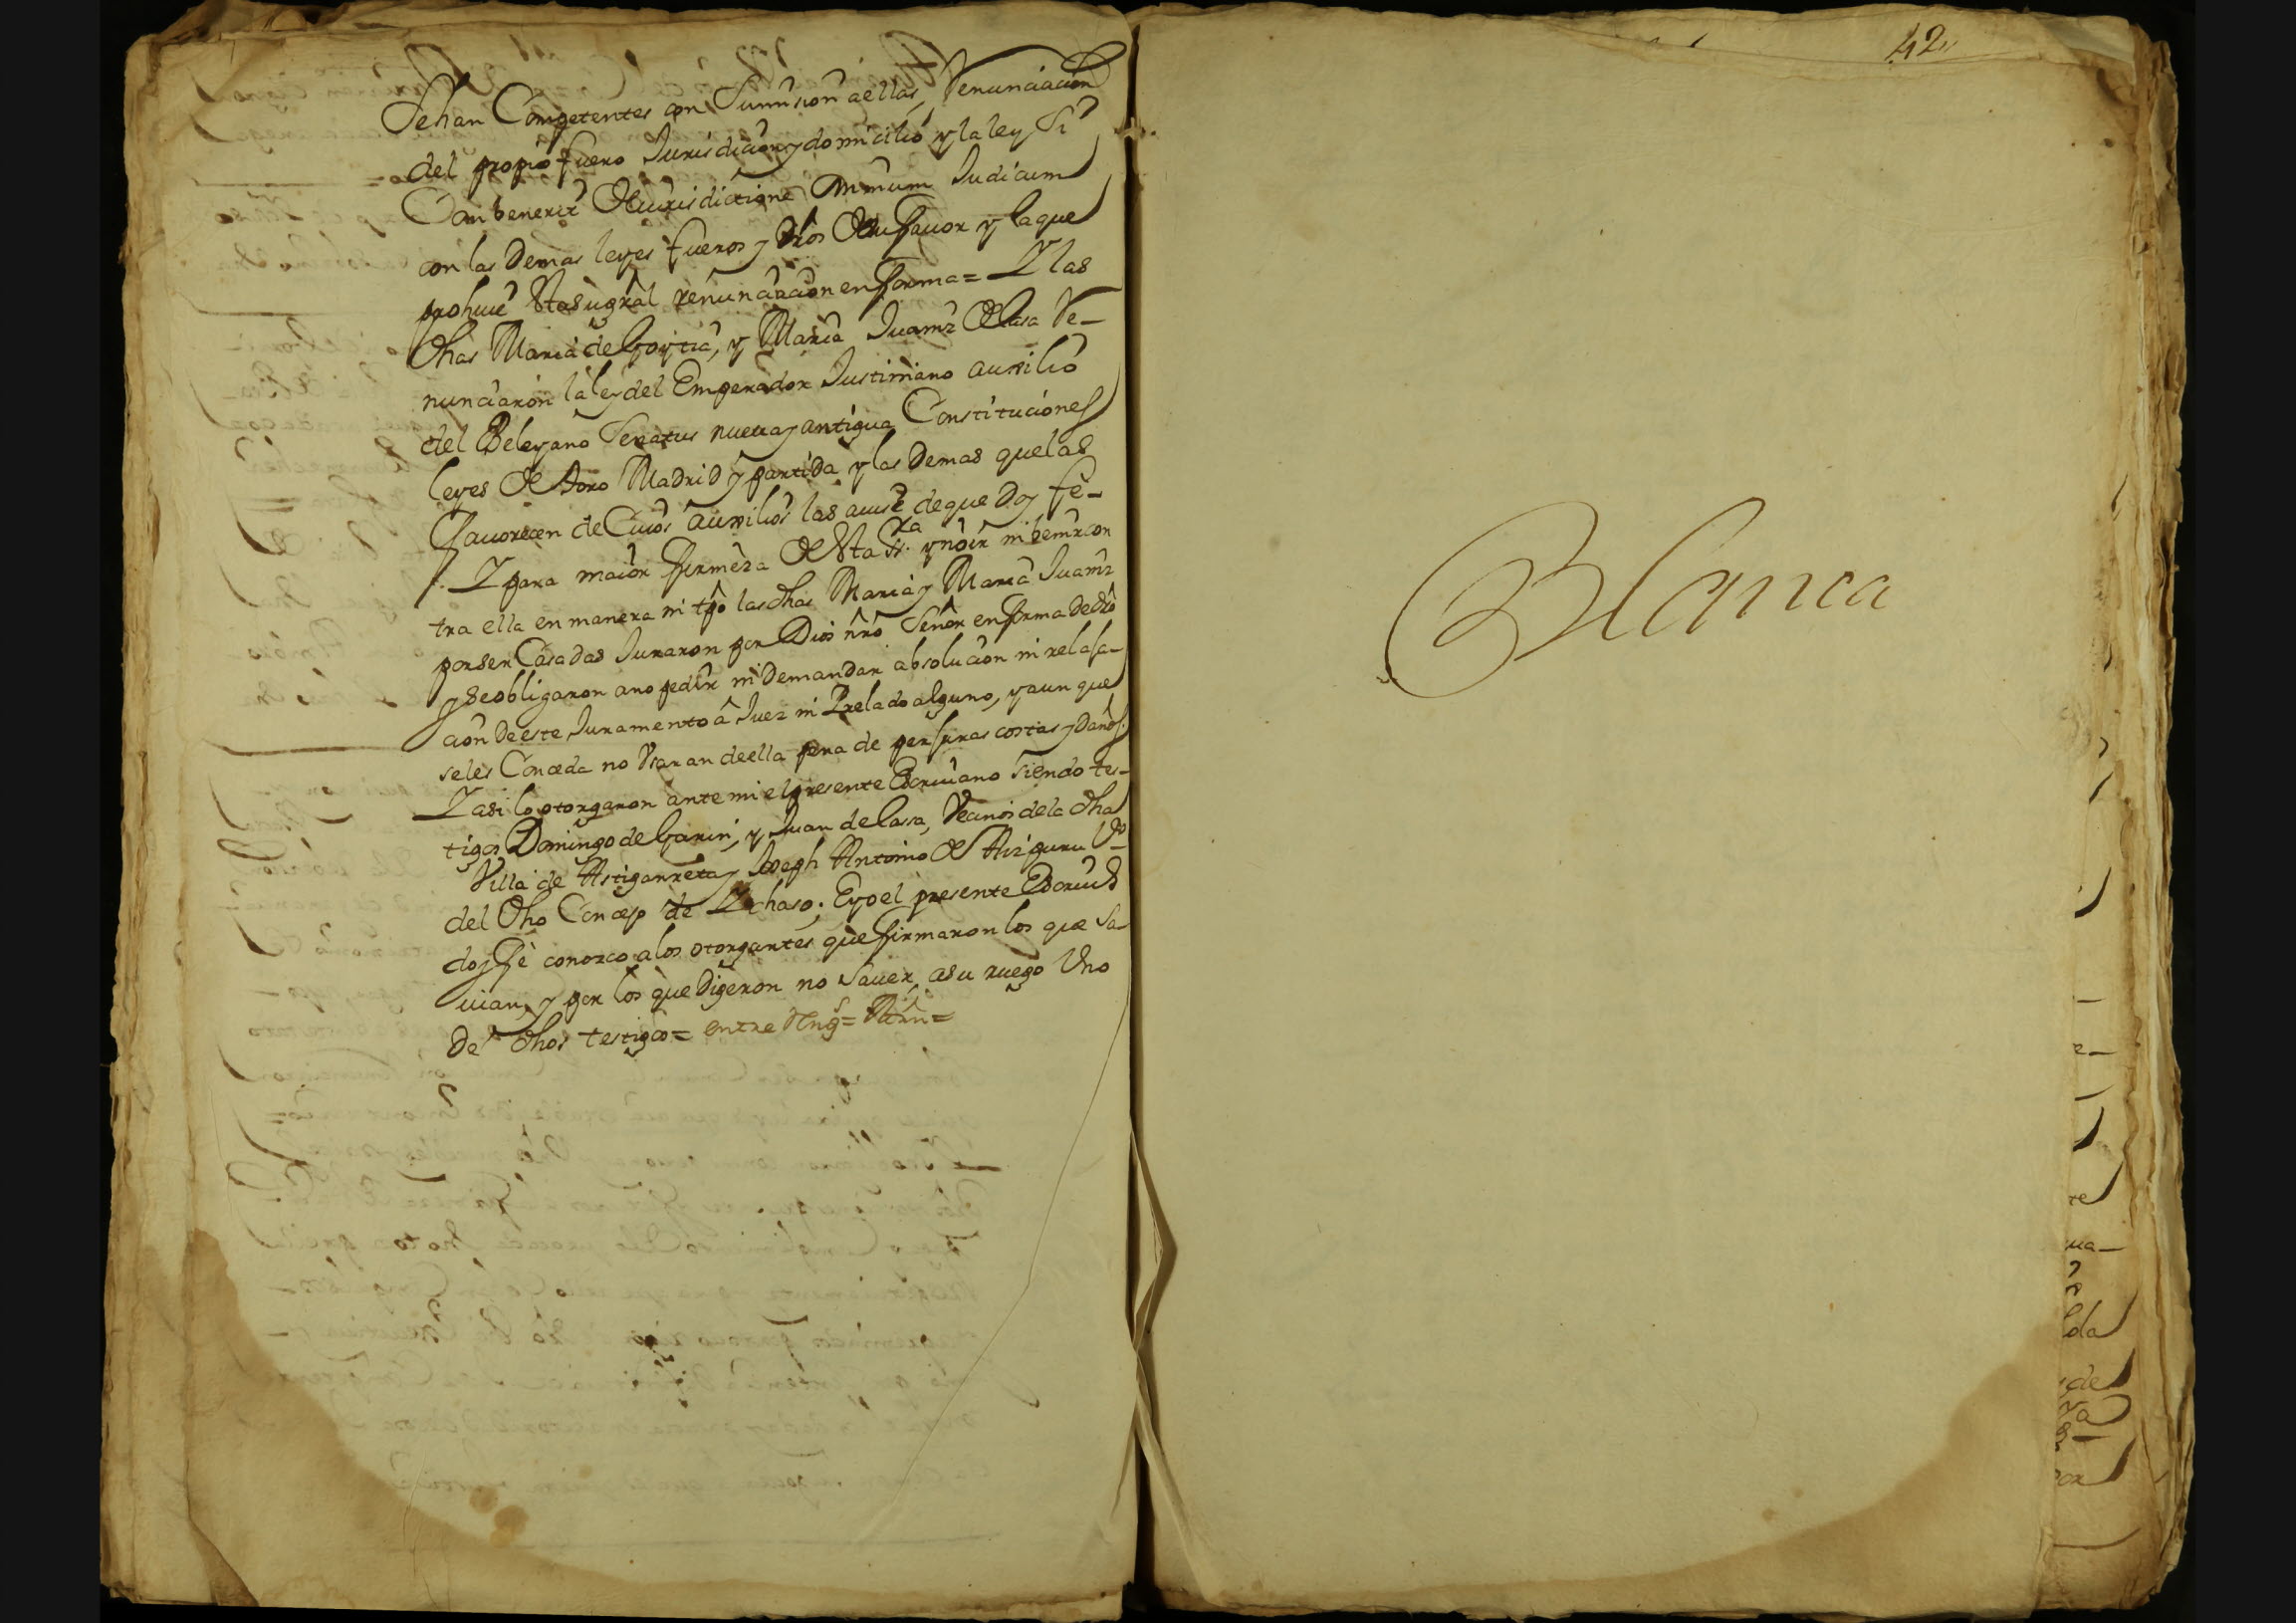 Sehan Competentes con Sumision aellas, Renunciacion
del propio fuero Jurisdicion y domicilio y la ley Si
Combenerit de Jurisdictione Omnium Judicum
con las Demas leyes fueros y dros de su favor y la que
prohive esta su gral renunciacion en forma = Y las
dhas Maria de Goytia, y Maria Juamz de lasa Re-
nunciaron la ley del Emperador Justiniano auxilio
del Beleyano Senatus nueva y antigua Constituciones
leyes de toro Madrid y partida y las Demas que las
favorecen de Cuios auxilios las avisé de que Doy fe-
Y para maior firmeza de esta ssra y no ir ni benir con
tra ella en manera ni tpo las dhas Maria y Maria Juamz
por ser Casadas Juraron por Dios nro Señor en forma de dro
y se obligaron a no pedir ni Demandar absolucion ni relaja-
cion de este Juramento â Juez ni Prelado alguno, y aun que
seles Conceda no Usaran de ella pena de perjuras costas y Daños.
Y asi lo otorgaron ante mi el presente Escrivano siendo tes-
tigos Domingo de Garin, y Juan de lasa, Vecinos de la dha
Villa de Astigarreta y Joseph Antonio de Aizpuru Vº
del dho Concejo de Ychaso; E yo el presente Escrivº
doy fè conozco a los otorgantes que firmaron los que sa-
vian, y por los que Digeron no Saver, a su ruego Uno
De dhos testigos = entre Rengs =
42
Blanca